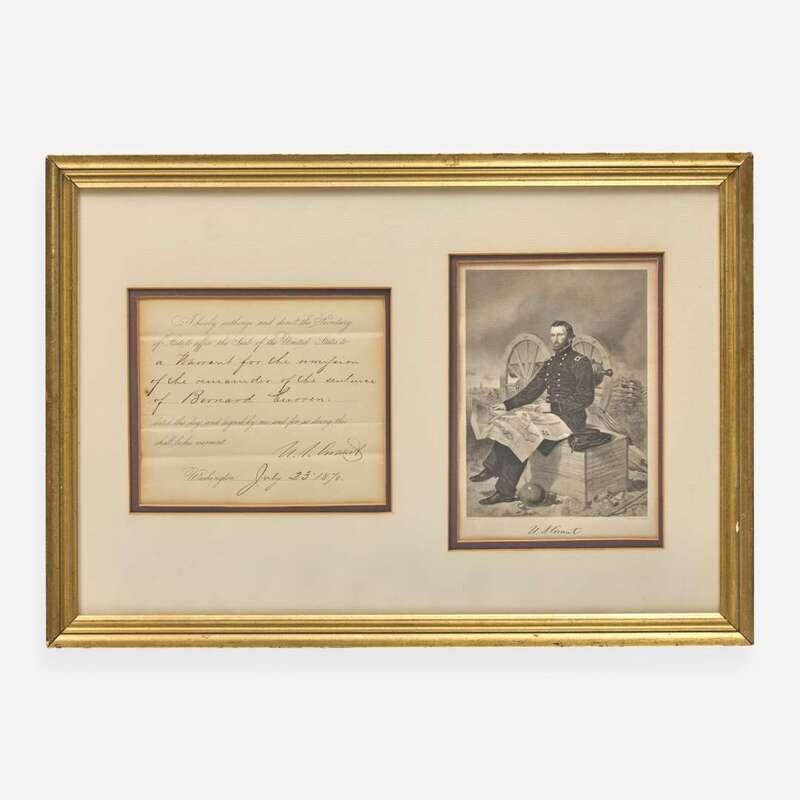 I hereby authorize and direct the Secretary
of State to affix the Seal of the United States to
a Warrant for the remission
of the remainder of the sentence
of Bernard Curren.
dated this day, and signed by me and for so doing this
shall be his warrant.
U. S. Grant
Washington July 23. 1870.
U. S. Grant